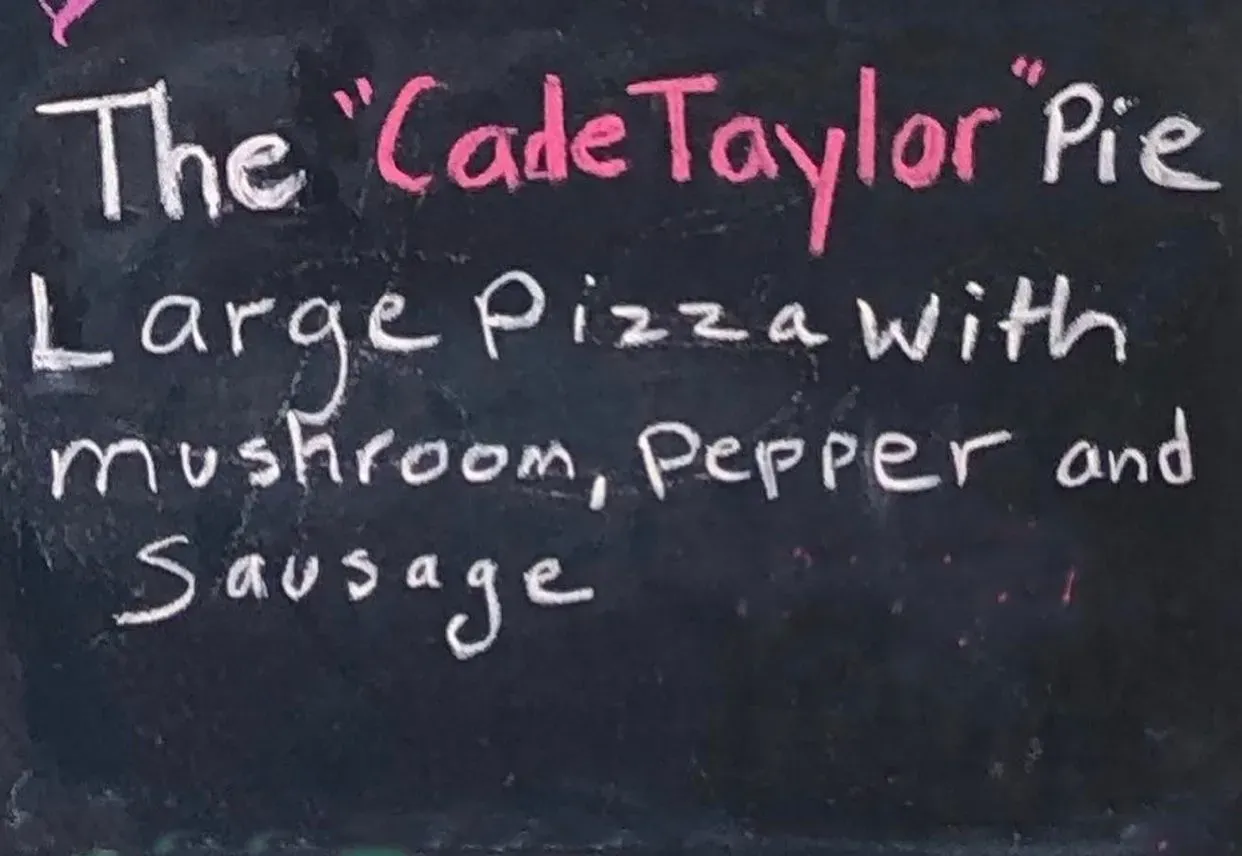 The "Cade Taylor" Pie
Large Pizza with
mushroom, Pepper and
Sausage